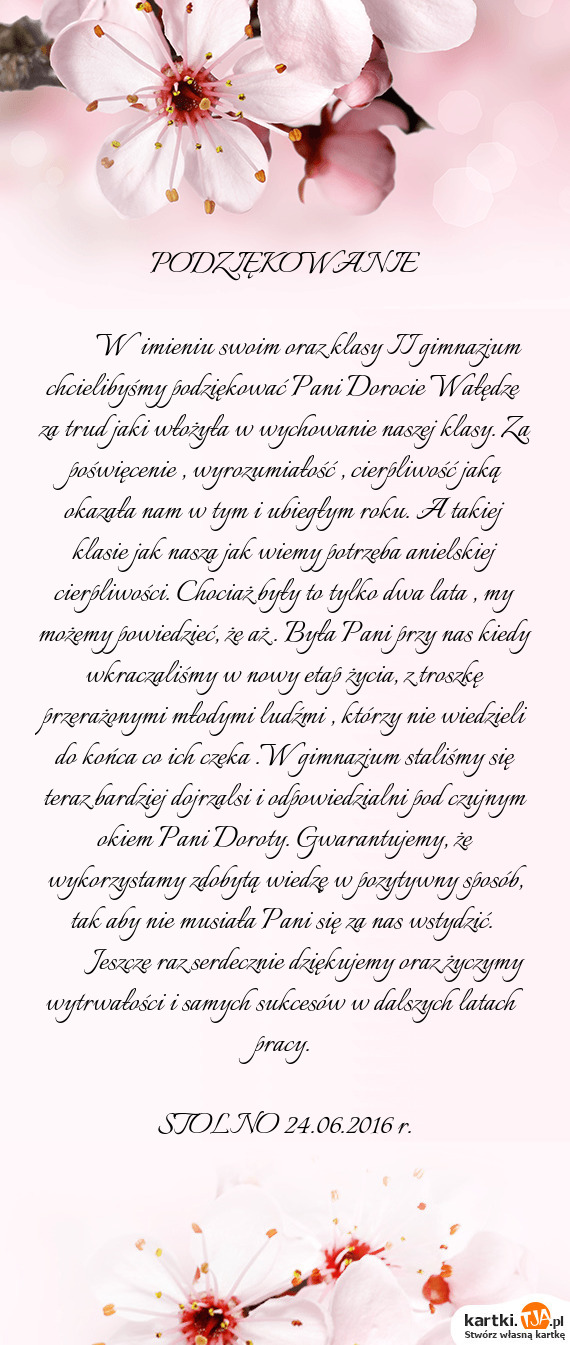 PODZIĘKOWANIE
W imieniu swoim oraz klasy II gimnazjum
chcielibyśmy podziękować Pani Dorocie Wałędze
za trud jaki włożyła w wychowanie naszej klasy. Za
poświęcenie , wyrozumiałość , cierpliwość jaką
okazała nam w tym i ubiegłym roku. A takiej
klasie jak nasza jak wiemy potrzeba anielskiej
cierpliwości. Chociaż były to tylko dwa lata , my
możemy powiedzieć, że aż . Była Pani przy nas kiedy
wkraczaliśmy w nowy etap życia, z troszkę
przerażonymi młodymi ludźmi , którzy nie wiedzieli
do końca co ich czeka .W gimnazjum staliśmy się
teraz bardziej dojrzalsi i odpowiedzialni pod czujnym
okiem Pani Doroty. Gwarantujemy, że
wykorzystamy zdobytą wiedzę w pozytywny sposób,
tak aby nie musiała Pani się za nas wstydzić.
Jeszcze raz serdecznie dziękujemy oraz życzymy
wytrwałości i samych sukcesów w dalszych latach
pracy.
STOLNO 24.06.2016 r.
kartki.TJA.pl
Stwórz własną kartkę